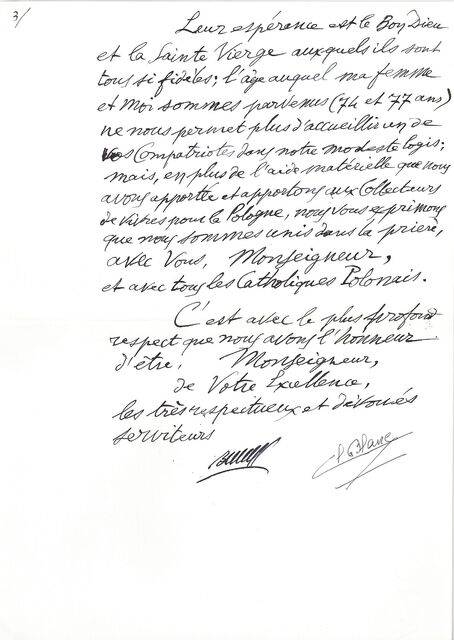 3/
Leur espérance est le Bon Dieu
et la Sainte Vierge auxquels ils sont
tous si fidèles ; l'âge auquel ma femme
et moi sommes parvenus (74 et 77 ans)
ne nous permet plus d'accueillir un de
vos Compatriotes dans notre modeste logis ;
mais, en plus de l'aide matérielle que nous
avons apportée et apportons aux Collecteurs
de vivres pour la Pologne, nous vous exprimons
que nous sommes unis dans la prière,
avec Vous, Monseigneur,
et avec tous les Catholiques Polonais.
C'est avec le plus profond
respect que nous avons l'honneur
d'être, Monseigneur,
de Votre Excellence,
les très respectueux et dévoués
serviteurs